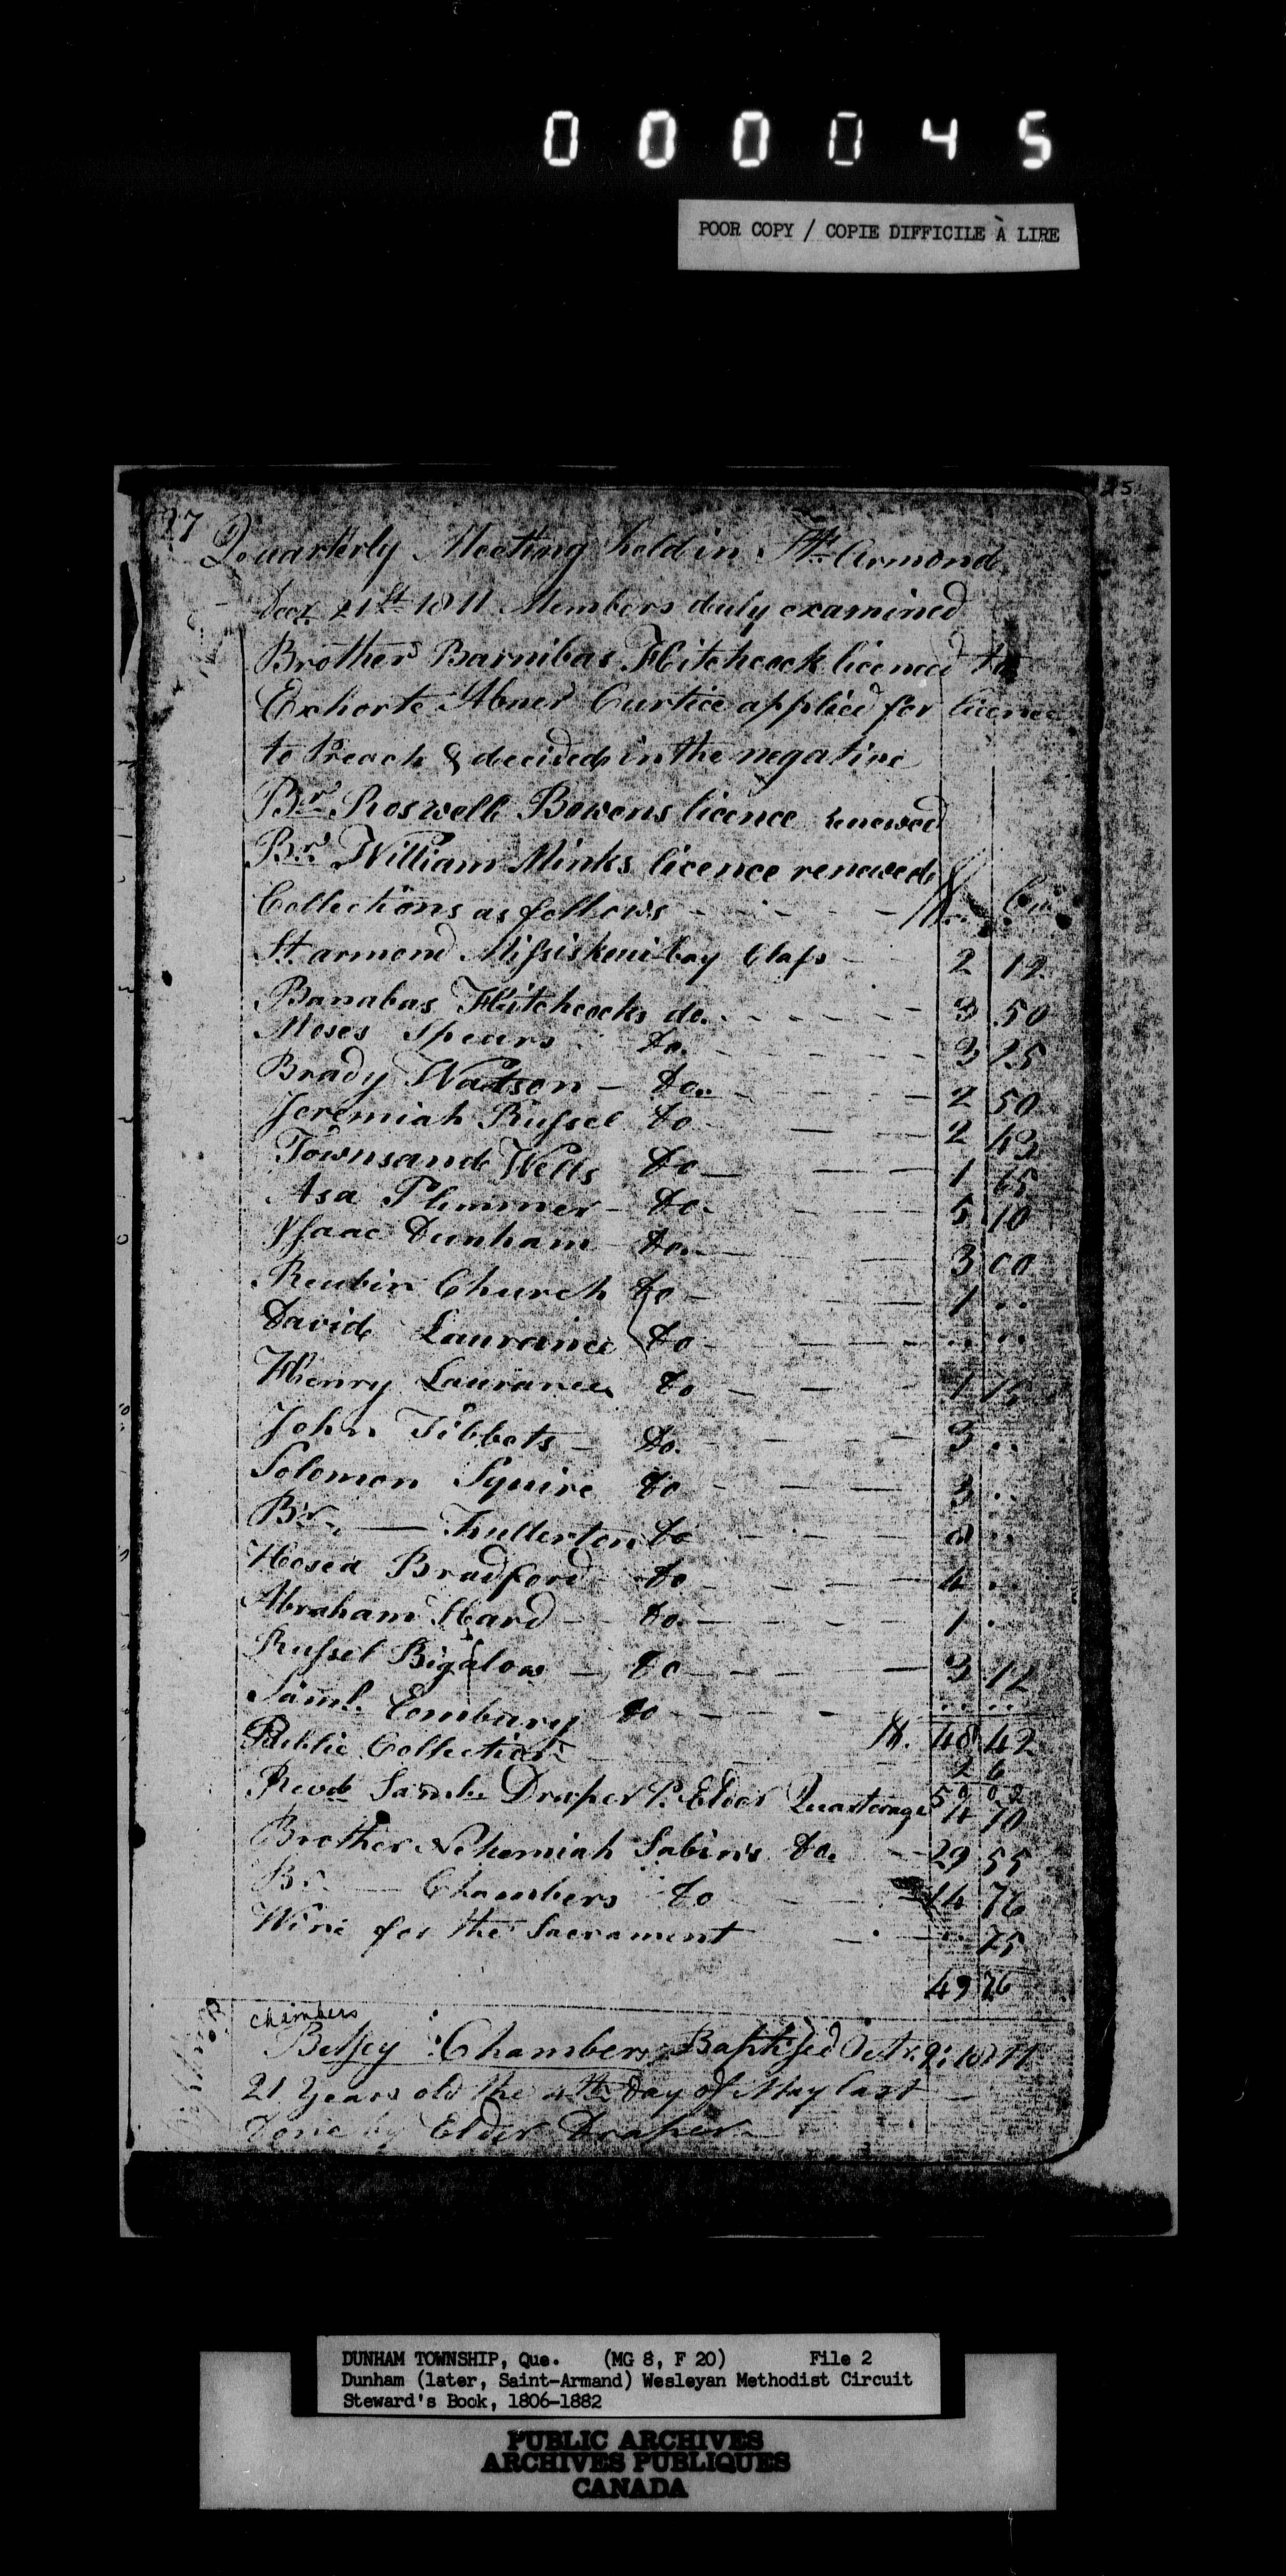 000045
POOR COPY / COPIE DIFFICILE À LIRE
25
27
Quarterly Meeting held in St. Armond
Decr 21st 1811 Members duly examined
Brother Barnibas Hitchcock licenced to
Exhorte Abner Curtice applied for licence
to Preach & decided in the negative
Br. Roswell Bowens licence renewed
Br. William Minks licence renewed
Collections as follows
St armond Missiskoui bay Class 2 12
Banabas Hitchcocks do. 3 50
Moses Spears Do. 3 25
Brady Watson Do. 2 50
Jeremiah Russel Do 2 43
Townsand Wells Do 1 65
Asa Plummer Do. 5 10
Isaac Dunham Do. 3 00
Reubin Church Do 1 ..
David Laurance Do .. ..
Henry Laurance Do 1 75
John Tibbets Do. 3 ..
Solomon Squire Do 3 ..
Br. — Fullerton Do 8 ..
Hosea Bradford Do 4 ..
Abraham Hard Do. 1 .
Russel Bigalow Do 3 12
Saml. Embury Do .. ..
48 42
Public Collection 2 6
50 02
Revd Saml. Draper P. Elder Quarterage 4 70
Brother Nehemiah Sabins Do. 29 55
Br. — Chambers Do 14 76
Wine for the Sacrament .. 75
49 76
Chambers
Betsey Chambers Baptised Octr. 9: 1811
21 Years old the 4th Day of May last
Done by Elder Draper
DUNHAM TOWNSHIP, Que. (MG 8, F 20) File 2
Dunham (later, Saint-Armand) Wesleyan Methodist Circuit
Steward's Book, 1806-1882
PUBLIC ARCHIVES
ARCHIVES PUBLIQUES
CANADA